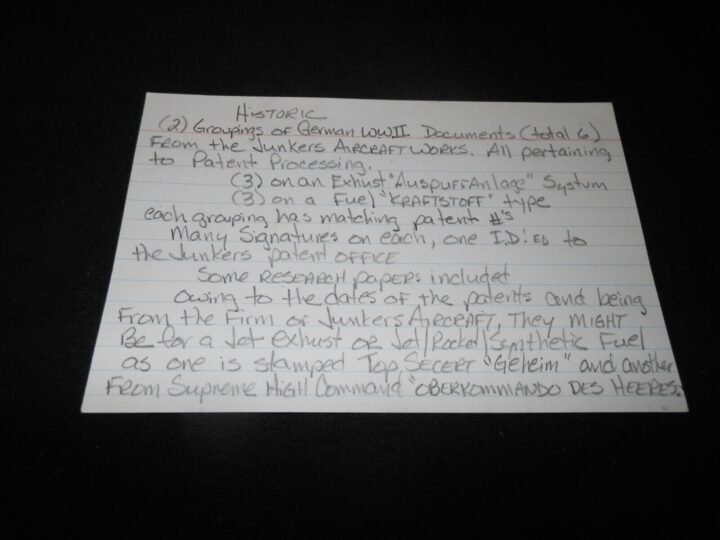 HISTORIC
(2) Groupings of German WWII Documents (total 6)
From the Junkers AIRCRAFT WORKS. All pertaining
to Patent Processing.
(3) on an Exhust "AuspuffAnlage" System
(3) on a Fuel "KRAFTSTOFF" type
each grouping has matching patent #'s
Many Signatures on each, one I.D.'ED to
the Junkers patent OFFICE
Some RESEARCH papers included
owing to the dates of the patents and being
From the Firm of Junkers AIRCRAFT, They MIGHT
Be for a Jet exhust or Jet/Rocket/Synthetic Fuel
as one is stamped Top SECERT "Geheim" and another
From Supreme HIGH Command "OBERKOMMANDO DES HEERES.